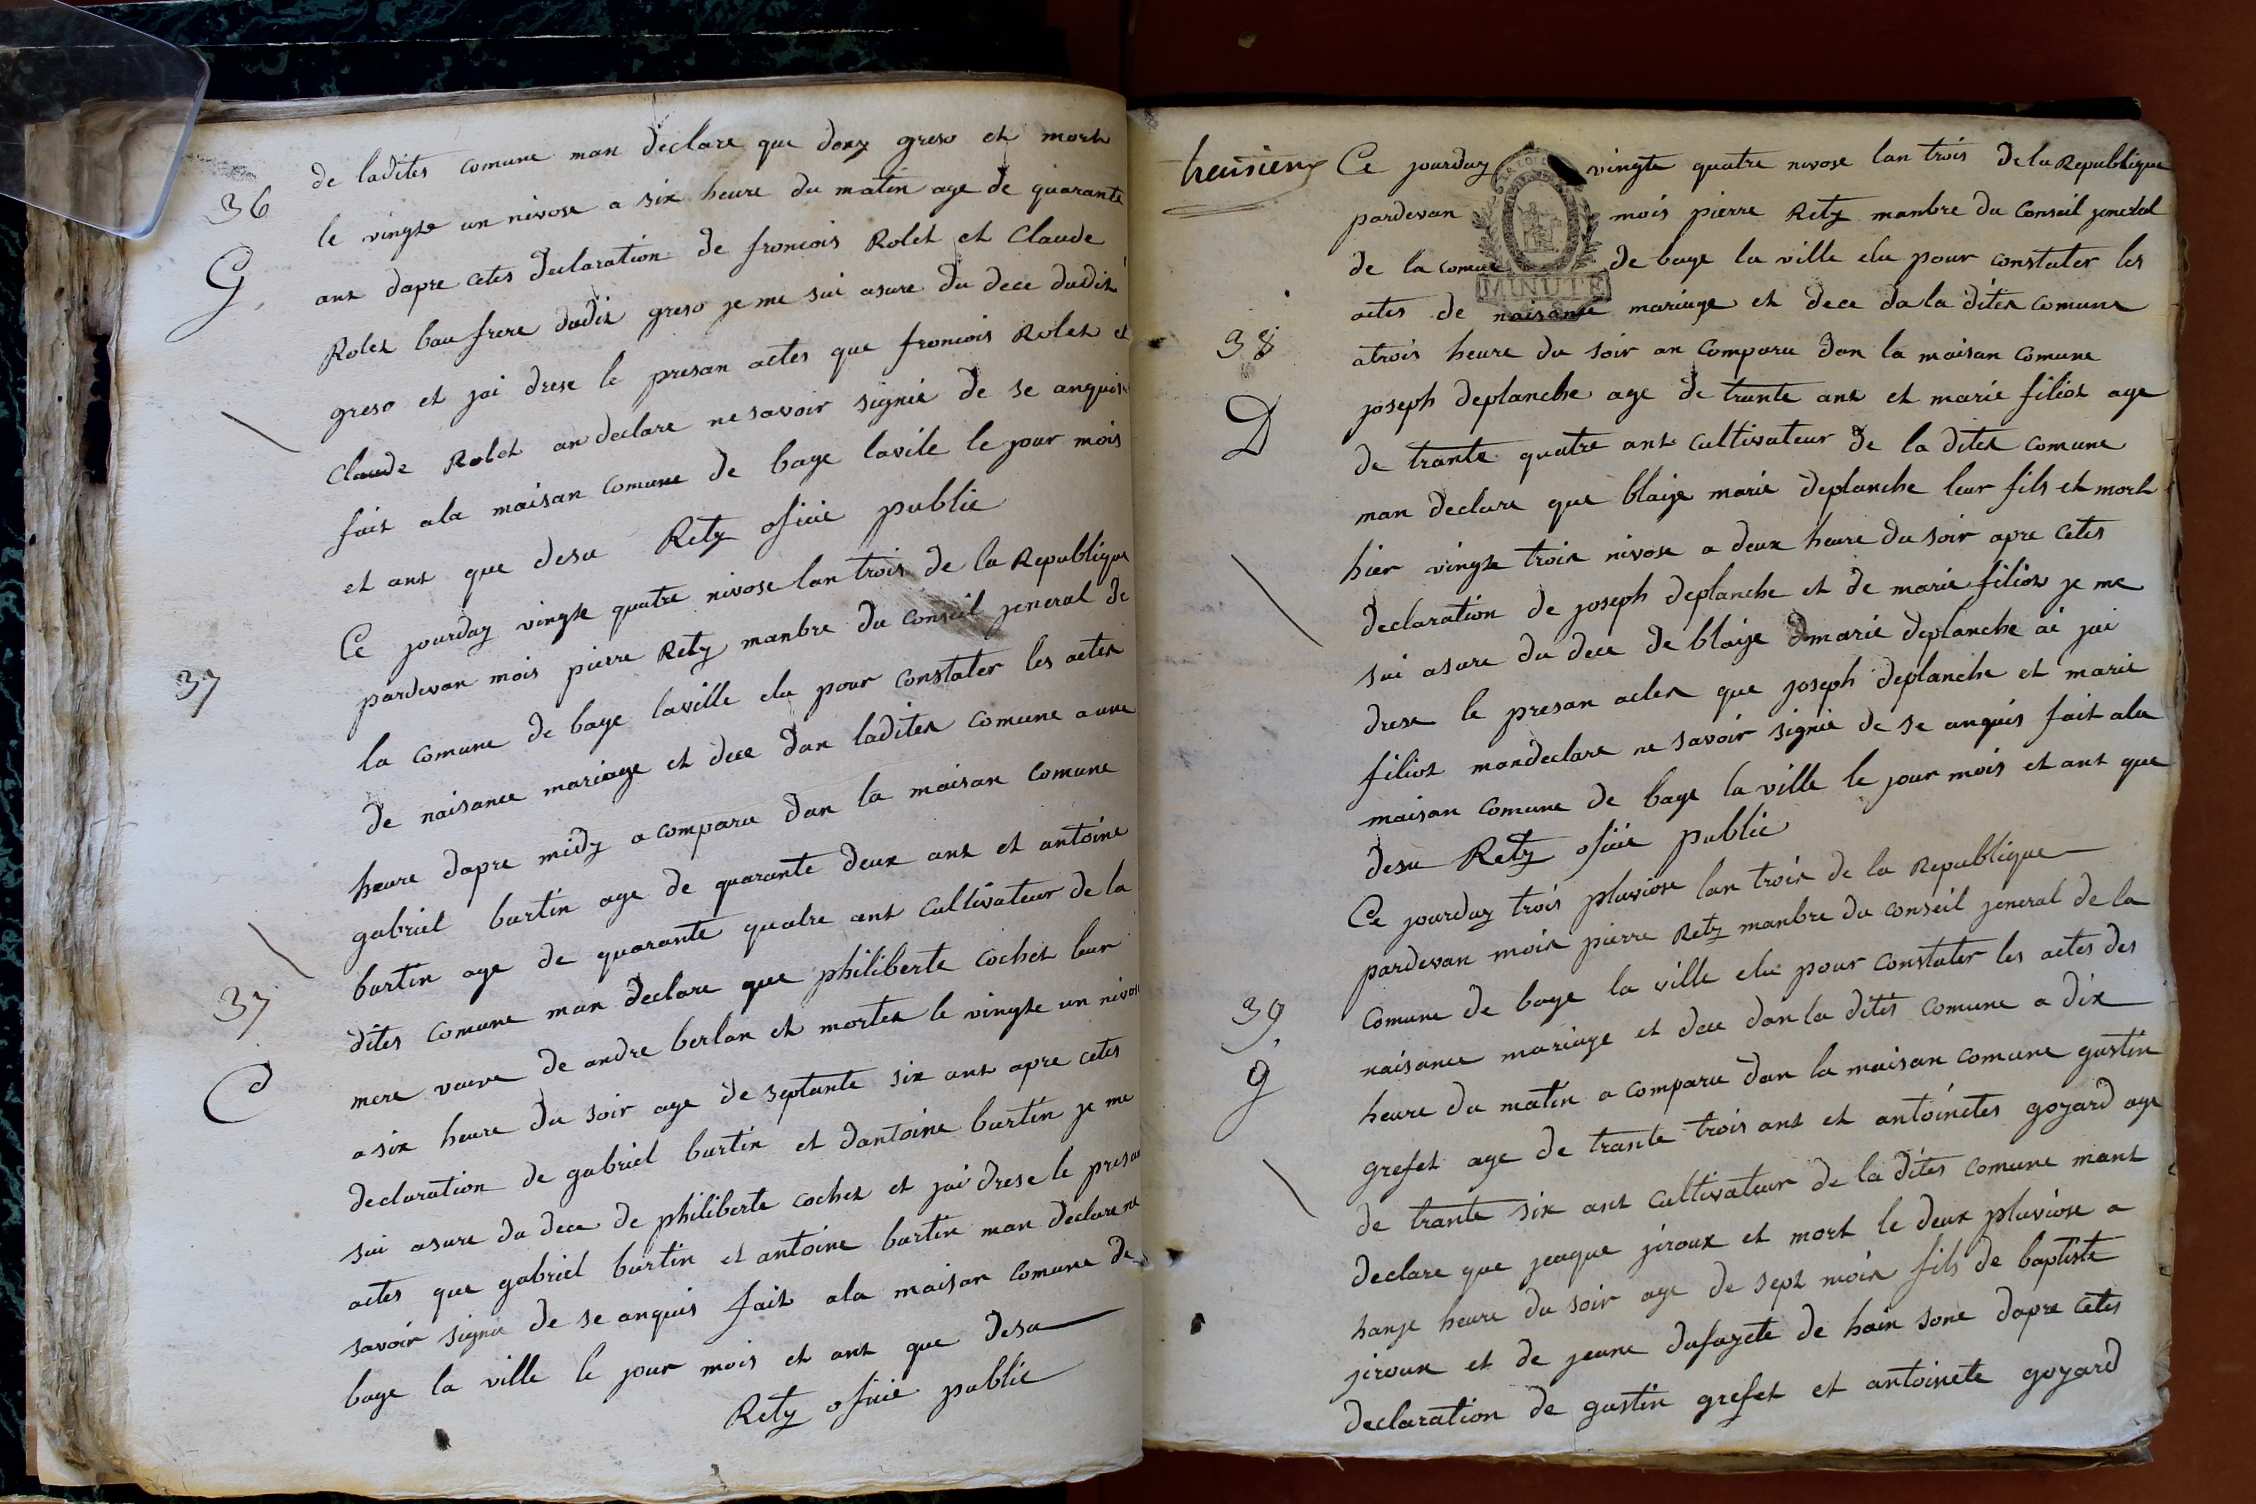 de ladites comune man declare que dony greso et mort
36
le vingte un nivose a six heure du matin age de quarante
G
ans dapre cetes declaration de froncois Rolet et Claude
Rolet bau frere dudit greso je me sui asure du dece dudit
greso et jai drese le presan actes que froncois Rolet et
Claude Rolet an declare ne savoir signié de se anquis
fait ala maisan comune de bage lavile le jour mois
et ant que desu Rety ofició public
Ce jourduy vingte quatre nivose lan trois de la Republique
37
pardevan mois pierre Rety manbre du Conseil jeneral de
la comune de bage laville elu pour constater les actes
de naisance mariage et dece dan ladites comune a une
heure dapre midy a comparu dan la maisan comune
gabriel burtin age de quarante deux ans et antoine
burtin age de quarante quatre ant cultivateur de la
37
dites comune man declare que philiberte cochet leur
C
mere vauve de andre berlan et mortes le vingte un nivose
a six heure du soir age de septante six ans apre cetes
declaration de gabriel burtin et dantoine burtin je me
sui asure du dece de philiberte cochet et jai drese le presan
actes que gabriel burtin et antoine burtin man declare ne
savoir signie de se anquis fait ala maisan comune de
bage la ville le jour mois et ant que desu
Rety oficie public
Ce jourduy vingte quatre nivose lan trois de la Republique
pardevan mois pierre Rety manbre du Conseil jeneral
de la comune de bage la ville elu pour constater les
MINUTE
actes de naisance mariage et dece da la dites comune
38
atrois heure du soir an comparu dan la maisan comune
D
joseph deplanche age de trante ans et marie filiot age
de trante quatre ant cultivateur de la dites comune
man declare que blaise marie deplanche leur fils et mort
hier vingte trois nivose a deux heure du soir apre cetes
declaration de joseph deplanche et de marie filiot je me
sui asure du dece de blaise marie deplanche ai jai
drese le presan actes que joseph deplanche et marie
filiot man declare ne savoir signié de se anquis fait ala
maisan comune de bage la ville le jour mois et ant que
desu Rety oficie public
Ce jourduy trois pluviose lan trois de la Republique
pardevan mois pierre Rety manbre du conseil jeneral de la
39
comune de bage la ville elu pour constater les actes des
g
naisance mariage et dece dan la dites comune a dix
heure du matin a comparu dan la maisan comune gustin
grefet age de trante trois ans et antoinetes goyard age
de trante six ant cultivateur de la dites comune mant
declare que jeaque jiroux et mort le deux pluviose a
hanze heure du soir age de sept mois fils de baptiste
jiroux et de jeane dufayete de hain sone dapre cetes
declaration de gustin grefet et antoinete goyard